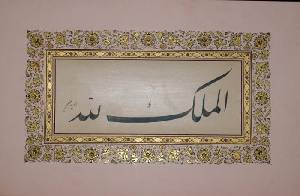 الملك لله